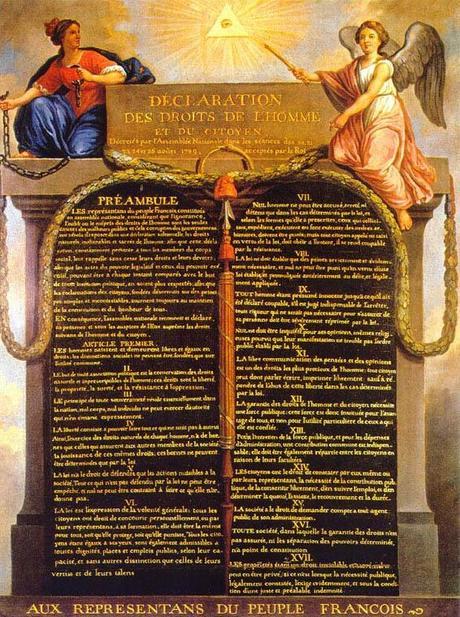 DÉCLARATION
DES DROITS DE L'HOMME
ET DU CITOYEN
Décrétés par l'Assemblée Nationale dans les séances des 20, 21
23, 24 et 26 août 1789, acceptés par le Roi
PRÉAMBULE
LES représentans du peuple François, constitués
en assemblée nationale, considérant que l'ignorance,
l'oubli ou le mépris des droits de l'homme sont les seules
causes des malheurs publics et de la corruption des gouvernemens
ont résolu d'exposer dans une déclaration solemnelle, les droits
naturels, inaliénables et sacrés de l'homme; afin que cette décla-
ration, constamment présente à tous les membres du corps
social, leur rappelle sans cesse leurs droits et leurs devoirs;
afin que les actes du pouvoir législatif et ceux du pouvoir exé-
cutif, pouvant être à chaque instant comparés avec le but
de toute institution politique, en soient plus respectés; afin que
les réclamations des citoyens, fondées désormais sur des prin-
cipes simples et incontestables, tournent toujours au maintien
de la constitution et du bonheur de tous.
EN conséquence, l'assemblée nationale reconnoit et déclare,
en présence et sous les auspices de l'Être suprême les droits
suivans de l'homme et du citoyen.
ARTICLE PREMIER
LES hommes naissent et demeurent libres et égaux en
droits; les distinctions sociales ne peuvent être fondées que sur
l'utilité commune.
II.
LE but de toute association politique est la conservation des droits
naturels et imprescriptibles de l'homme; ces droits sont la liberté,
la propriété, la sureté, et la résistance à l'oppression.
III.
LE principe de toute souveraineté réside essentiellement dans
la nation, nul corps, nul individu ne peut exercer d'autorité
qui n'en émane expressément.
IV
LA liberté consiste à pouvoir faire tout ce qui ne nuit pas à autrui
Ainsi, l'exercice des droits naturels de chaque homme, n'a de bor-
nes que celles qui assurent aux autres membres de la société
la jouissance de ces mêmes droits; ces bornes ne peuvent
être déterminées que par la loi
V.
LA loi n'a le droit de défendre que les actions nuisibles à la
société. Tout ce qui n'est pas défendu par la loi ne peut être
empêché, et nul ne peut être contraint à faire ce qu'elle n'or-
donne pas.
VI.
LA loi est l'expression de la volonté générale; tous les
citoyens ont droit de concourir personnellement, ou par
leurs représentans, à sa formation; elle doit être la même
pour tous, soit qu'elle protege, soit qu'elle punisse, Tous les cito-
yens étant égaux à ses yeux, sont également admissibles à
toutes dignités, places et emplois publics, selon leur ca-
pacité, et sans autre distinction que celles de leurs
vertus et de leurs talens.
VII.
NUL homme ne peut être accusé, arrêté, ni
détenu que dans les cas déterminés par la loi, et
selon les formes qu'elle a prescrites, ceux qui sollici-
tent, expédient, exécutent ou font exécuter des ordres ar-
bitraires, doivent être punis; mais tout citoyen appelé ou saisi
en vertu de la loi, doit obéir à l'instant, il se rend coupable
par la résistance.
VIII.
LA loi ne doit établir que des peines strictement et évidem-
ment nécessaires, et nul ne peut être puni qu'en vertu d'une
loi établie et promulguée antérieurement au délit, et légale-
ment appliquée.
IX.
TOUT homme étant présumé innocent jusqu'à ce qu'il ait
été déclaré coupable, s'il est jugé indispensable de l'arrêter,
toute rigueur qui ne serait pas nécessaire pour s'assurer de
sa personne doit être sévèrement réprimée par la loi.
X.
NUL ne doit être inquiété pour ses opinions, même reli-
gieuses pourvu que leur manifestation ne trouble pas l'ordre
public établi par la loi.
XI.
LA libre communication des pensées et des opinions
est un des droits les plus précieux de l'homme; tout citoyen
peut donc parler, écrire, imprimer librement, sauf à ré-
pondre de l'abus de cette liberté dans les cas déterminés
par la loi.
XII.
LA garantie des droits de l'homme et du citoyen nécessite
une force publique; cette force est donc instituée pour l'avan-
tage de tous, et non pour l'utilité particuliere de ceux a qui
elle est confiée.
XIII.
POUR l'entretien de la force publique, et pour les dépenses
d'administration, une contribution commune est indispen-
sable; elle doit être également répartie entre les citoyens en
raison de leurs facultés.
XIV.
LES citoyens ont le droit de constater par eux même ou
par leurs représentans, la nécessité de la contribution pub-
lique, de la consentir librement, d'en suivre l'emploi, et d'en
déterminer la quotité, l'assiette, le recouvrement et la durée.
XV.
LA société a le droit de demander compte a tout agent
public de son administration.
XVI.
TOUTE société, dans laquelle la garantie des droits n'est
pas assurée, ni la séparation des pouvoirs déterminée,
n'a point de constitution.
XVII.
LES propriétés étant un droit inviolable et sacré, nul ne
peut en être privé, si ce n'est lorsque la nécessité publique,
légalement constatée, l'exige évidemment, et sous la condi-
tion d'une juste et préalable indemnité.
AUX REPRESENTANS DU PEUPLE FRANCOIS